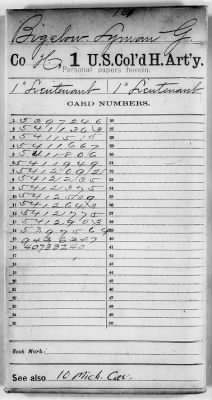 Bigelow, Lyman G
Co H, 1 U.S. Col'd H. Art'y.
Personal papers herein.
1" Lieutenant 1" Lieutenant
CARD NUMBERS.
1 5397246 26
2 5411363 27
3 5411515 28
4 5411667 29
5 5411806 30
6 5411949 31
7 32
8 5412235 33
9 5412375 34
10 5412509 35
11 5412643 36
12 5412775 37
13 5412903 38
14 5397564 39
15 40
16 41
17 42
18 43
19 44
20 45
21 46
22 47
23 48
24 49
25 50
Book Mark:
See also 10 Mich. Cav.